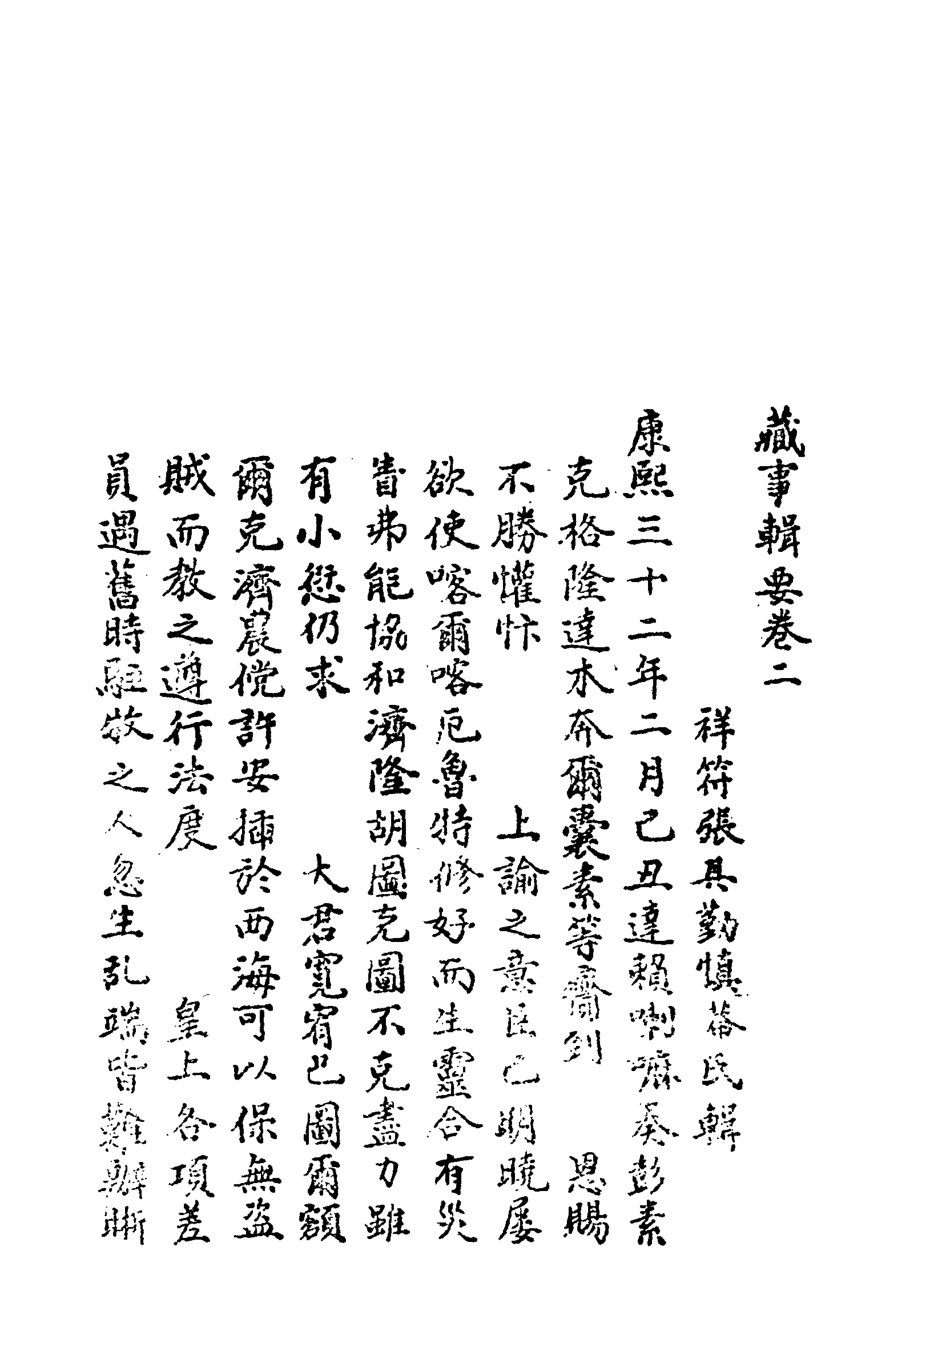 藏事輯要卷二
祥符張其勤慎葊氏輯
康熙三十二年二月己丑達賴喇嘛奏彭素
克格隆達木奔爾囊素等齎到　恩賜
不勝懽忭　上諭之意臣已明曉屡
欲使喀爾喀厄魯特修好而生靈合有災
眚弗能協和濟隆胡圖克圖不克盡力雖
有小愆仍求　大君寬宥巴圖爾額
爾克濟農儻許安插於西海可以保無盜
賊而教之遵行法度　皇上各項差
員遇舊時駐牧之人忽生乱端皆難辦晣